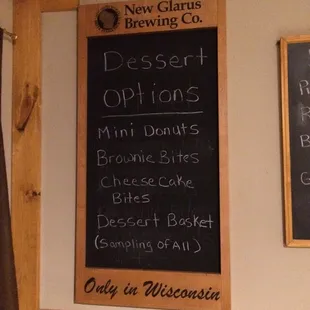 New Glarus
Brewing Co.
Dessert
Options
Mini Donuts
Brownie Bites
Cheese Cake
Bites
Dessert Basket
(Sampling of All)
Only in Wisconsin